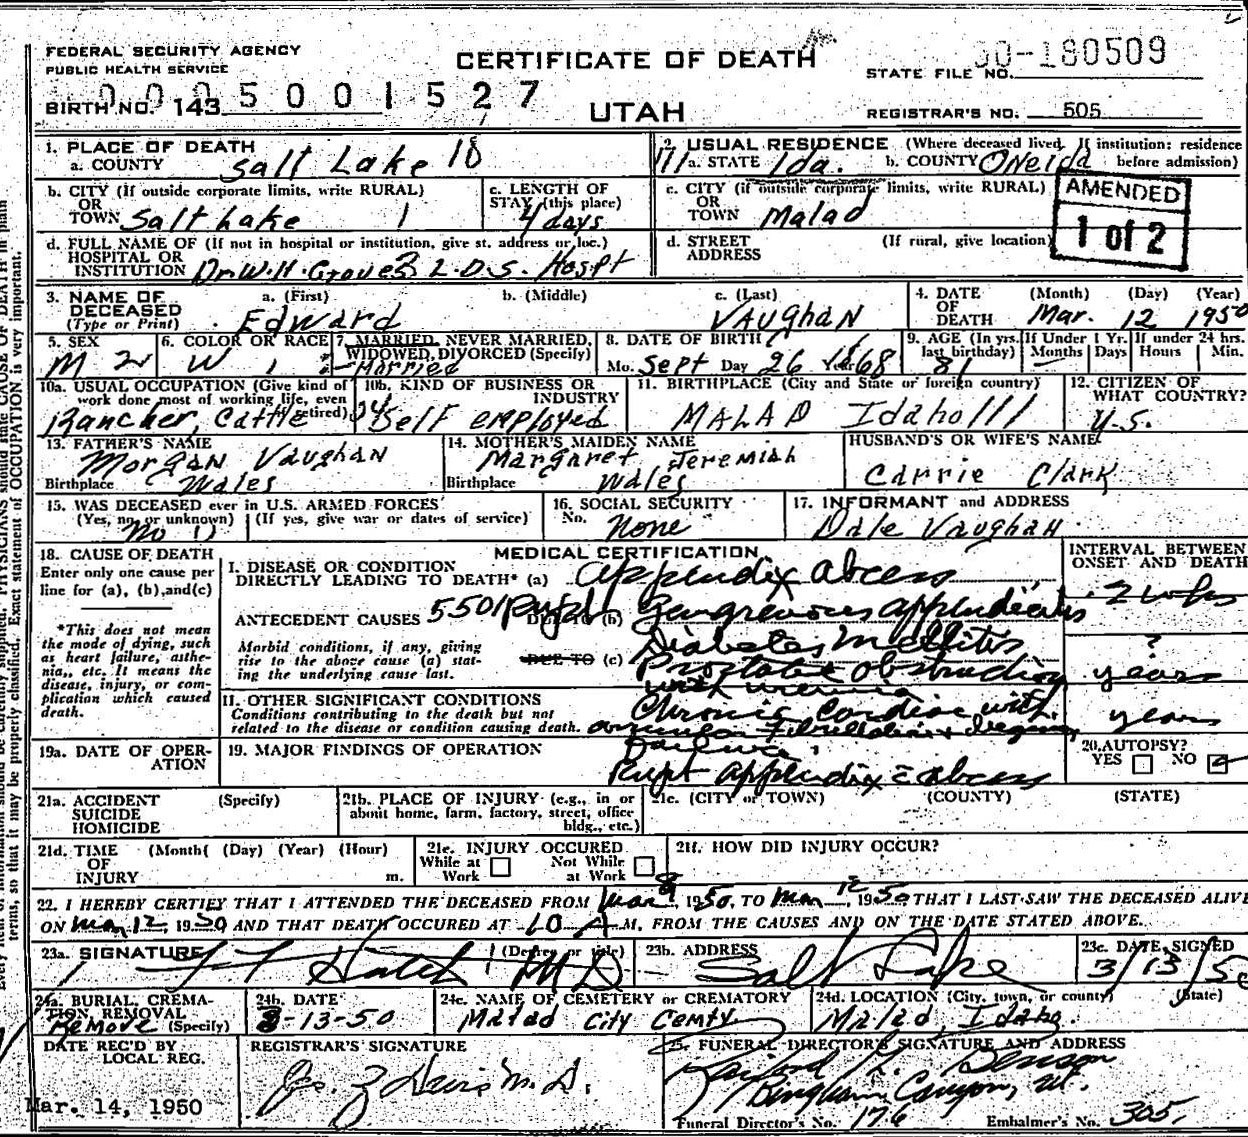 FEDERAL SECURITY AGENCY
PUBLIC HEALTH SERVICE
CERTIFICATE OF DEATH
UTAH
STATE FILE NO. 50-180509
0005001527
BIRTH NO. 143
REGISTRAR'S NO. 505
1. PLACE OF DEATH
a. COUNTY Salt Lake 18
2. USUAL RESIDENCE (Where deceased lived. If institution: residence before admission)
111 a. STATE Ida. b. COUNTY Oneida
b. CITY (If outside corporate limits, write RURAL)
OR
TOWN Salt Lake 1
c. LENGTH OF
STAY (this place)
4 days
c. CITY (if outside corporate limits, write RURAL)
OR
TOWN Malad
AMENDED
1 of 2
d. FULL NAME OF (If not in hospital or institution, give st. address or loc.)
HOSPITAL OR
INSTITUTION Dr. W. H. Groves L.D.S. Hospt
d. STREET
ADDRESS
(If rural, give location)
3. NAME OF
DECEASED
(Type or Print)
a. (First) Edward
b. (Middle)
c. (Last) Vaughan
4. DATE
OF
DEATH
(Month) (Day) (Year)
Mar. 12 1950
5. SEX
M 2
6. COLOR OR RACE
W 1
7. MARRIED, NEVER MARRIED,
WIDOWED, DIVORCED (Specify)
Married
8. DATE OF BIRTH
Mo. Sept Day 26 Year 1868
9. AGE (In yrs. last birthday) 81
If Under 1 Yr. Months Days
If under 24 hrs. Hours Min.
10a. USUAL OCCUPATION (Give kind of
work done most of working life, even
retired)
Rancher, Cattle
10b. KIND OF BUSINESS OR
INDUSTRY
Self employed
11. BIRTHPLACE (City and State or foreign country)
MALAD Idaho 111
12. CITIZEN OF
WHAT COUNTRY?
U.S.
13. FATHER'S NAME
Morgan Vaughan
Birthplace Wales
14. MOTHER'S MAIDEN NAME
Margaret Jeremiah
Birthplace Wales
HUSBAND'S OR WIFE'S NAME
Carrie Clark
15. WAS DECEASED ever in U.S. ARMED FORCES
(Yes, no, or unknown) (If yes, give war or dates of service)
No
16. SOCIAL SECURITY
No. None
17. INFORMANT and ADDRESS
Dale Vaughan
18. CAUSE OF DEATH
Enter only one cause per
line for (a), (b), and (c)
*This does not mean
the mode of dying, such
as heart failure, asthe-
nia, etc. It means the
disease, injury, or com-
plication which caused
death.
MEDICAL CERTIFICATION
I. DISEASE OR CONDITION
DIRECTLY LEADING TO DEATH* (a) Appendix abcess
ANTECEDENT CAUSES 5501 DUE TO (b) Gangrenous appendicitis
Morbid conditions, if any, giving
rise to the above cause (a) stat-
ing the underlying cause last.
DUE TO (c) Diabetes Mellitis
Prostate obstruction
with uremia
II. OTHER SIGNIFICANT CONDITIONS
Conditions contributing to the death but not
related to the disease or condition causing death.
Chronic cardiac with
INTERVAL BETWEEN
ONSET AND DEATH
2 wks
?
years
years
19a. DATE OF OPER-
ATION
19. MAJOR FINDINGS OF OPERATION
Rupt appendix c abcess
20. AUTOPSY?
YES NO
21a. ACCIDENT
SUICIDE
HOMICIDE
(Specify)
21b. PLACE OF INJURY (e.g., in or
about home, farm, factory, street, office
bldg., etc.)
21c. (CITY or TOWN) (COUNTY) (STATE)
21d. TIME
OF
INJURY
(Month) (Day) (Year) (Hour)
m.
21e. INJURY OCCURED
While at Work Not While at Work
21f. HOW DID INJURY OCCUR?
22. I HEREBY CERTIFY THAT I ATTENDED THE DECEASED FROM Mar 8, 1950, TO Mar 12, 1950 THAT I LAST SAW THE DECEASED ALIVE
ON Mar 12, 1950 AND THAT DEATH OCCURED AT 10 A. M, FROM THE CAUSES AND ON THE DATE STATED ABOVE.
23a. SIGNATURE (Degree or title)
Hatch MD
23b. ADDRESS
Salt Lake
23c. DATE SIGNED
3/13/50
24a. BURIAL, CREMA-
TION, REMOVAL
(Specify)
Remove
24b. DATE
3-13-50
24c. NAME OF CEMETERY or CREMATORY
Malad City Cemty
24d. LOCATION (City, town, or county) (State)
Malad, Idaho.
DATE REC'D BY
LOCAL REG.
Mar. 14, 1950
REGISTRAR'S SIGNATURE
25. FUNERAL DIRECTOR'S SIGNATURE AND ADDRESS
Benson
Bingham Canyon, Ut.
Funeral Director's No. 176
Embalmer's No. 305